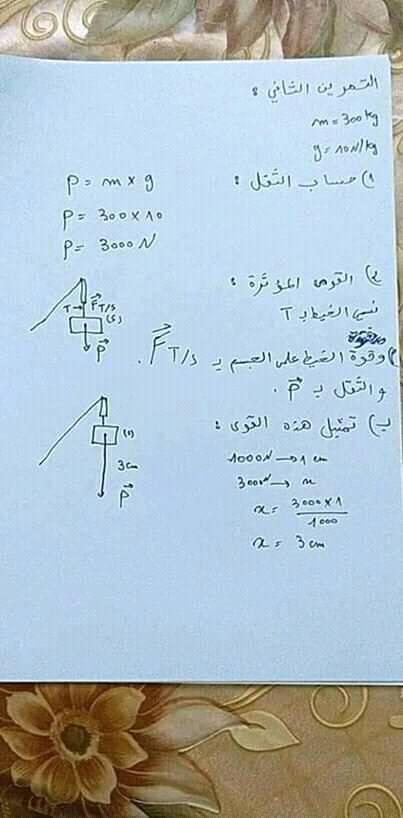 التمرين الثاني :
m = 300 kg
g = 10 N/kg
1) حساب الثقل :
P = m x g
P = 300 x 10
P = 3000 N
2) القوى المؤثرة :
نسمي الخيط بـ T
T F T/S
(S)
P
أ) وقوة الخيط على الجسم بـ F T/S .
و الثقل بـ P .
ب) تمثيل هذه القوى :
1000N → 1 cm
3000N → x
x = 3000 x 1 / 1000
x = 3 cm
(S)
3 cm
P